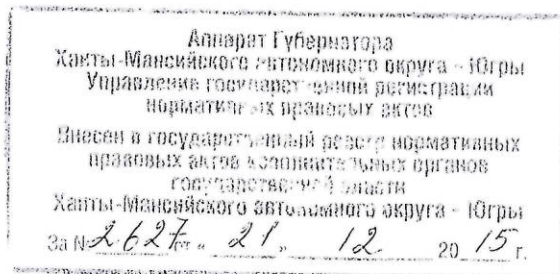 Аппарат Губернатора
Ханты-Мансийского автономного округа - Югры
Управление государственной регистрации
нормативных правовых актов
Внесен в государственный реестр нормативных
правовых актов исполнительных органов
государственной власти
Ханты-Мансийского автономного округа - Югры
За № 2627 от « 21 » 12 20 15 г.